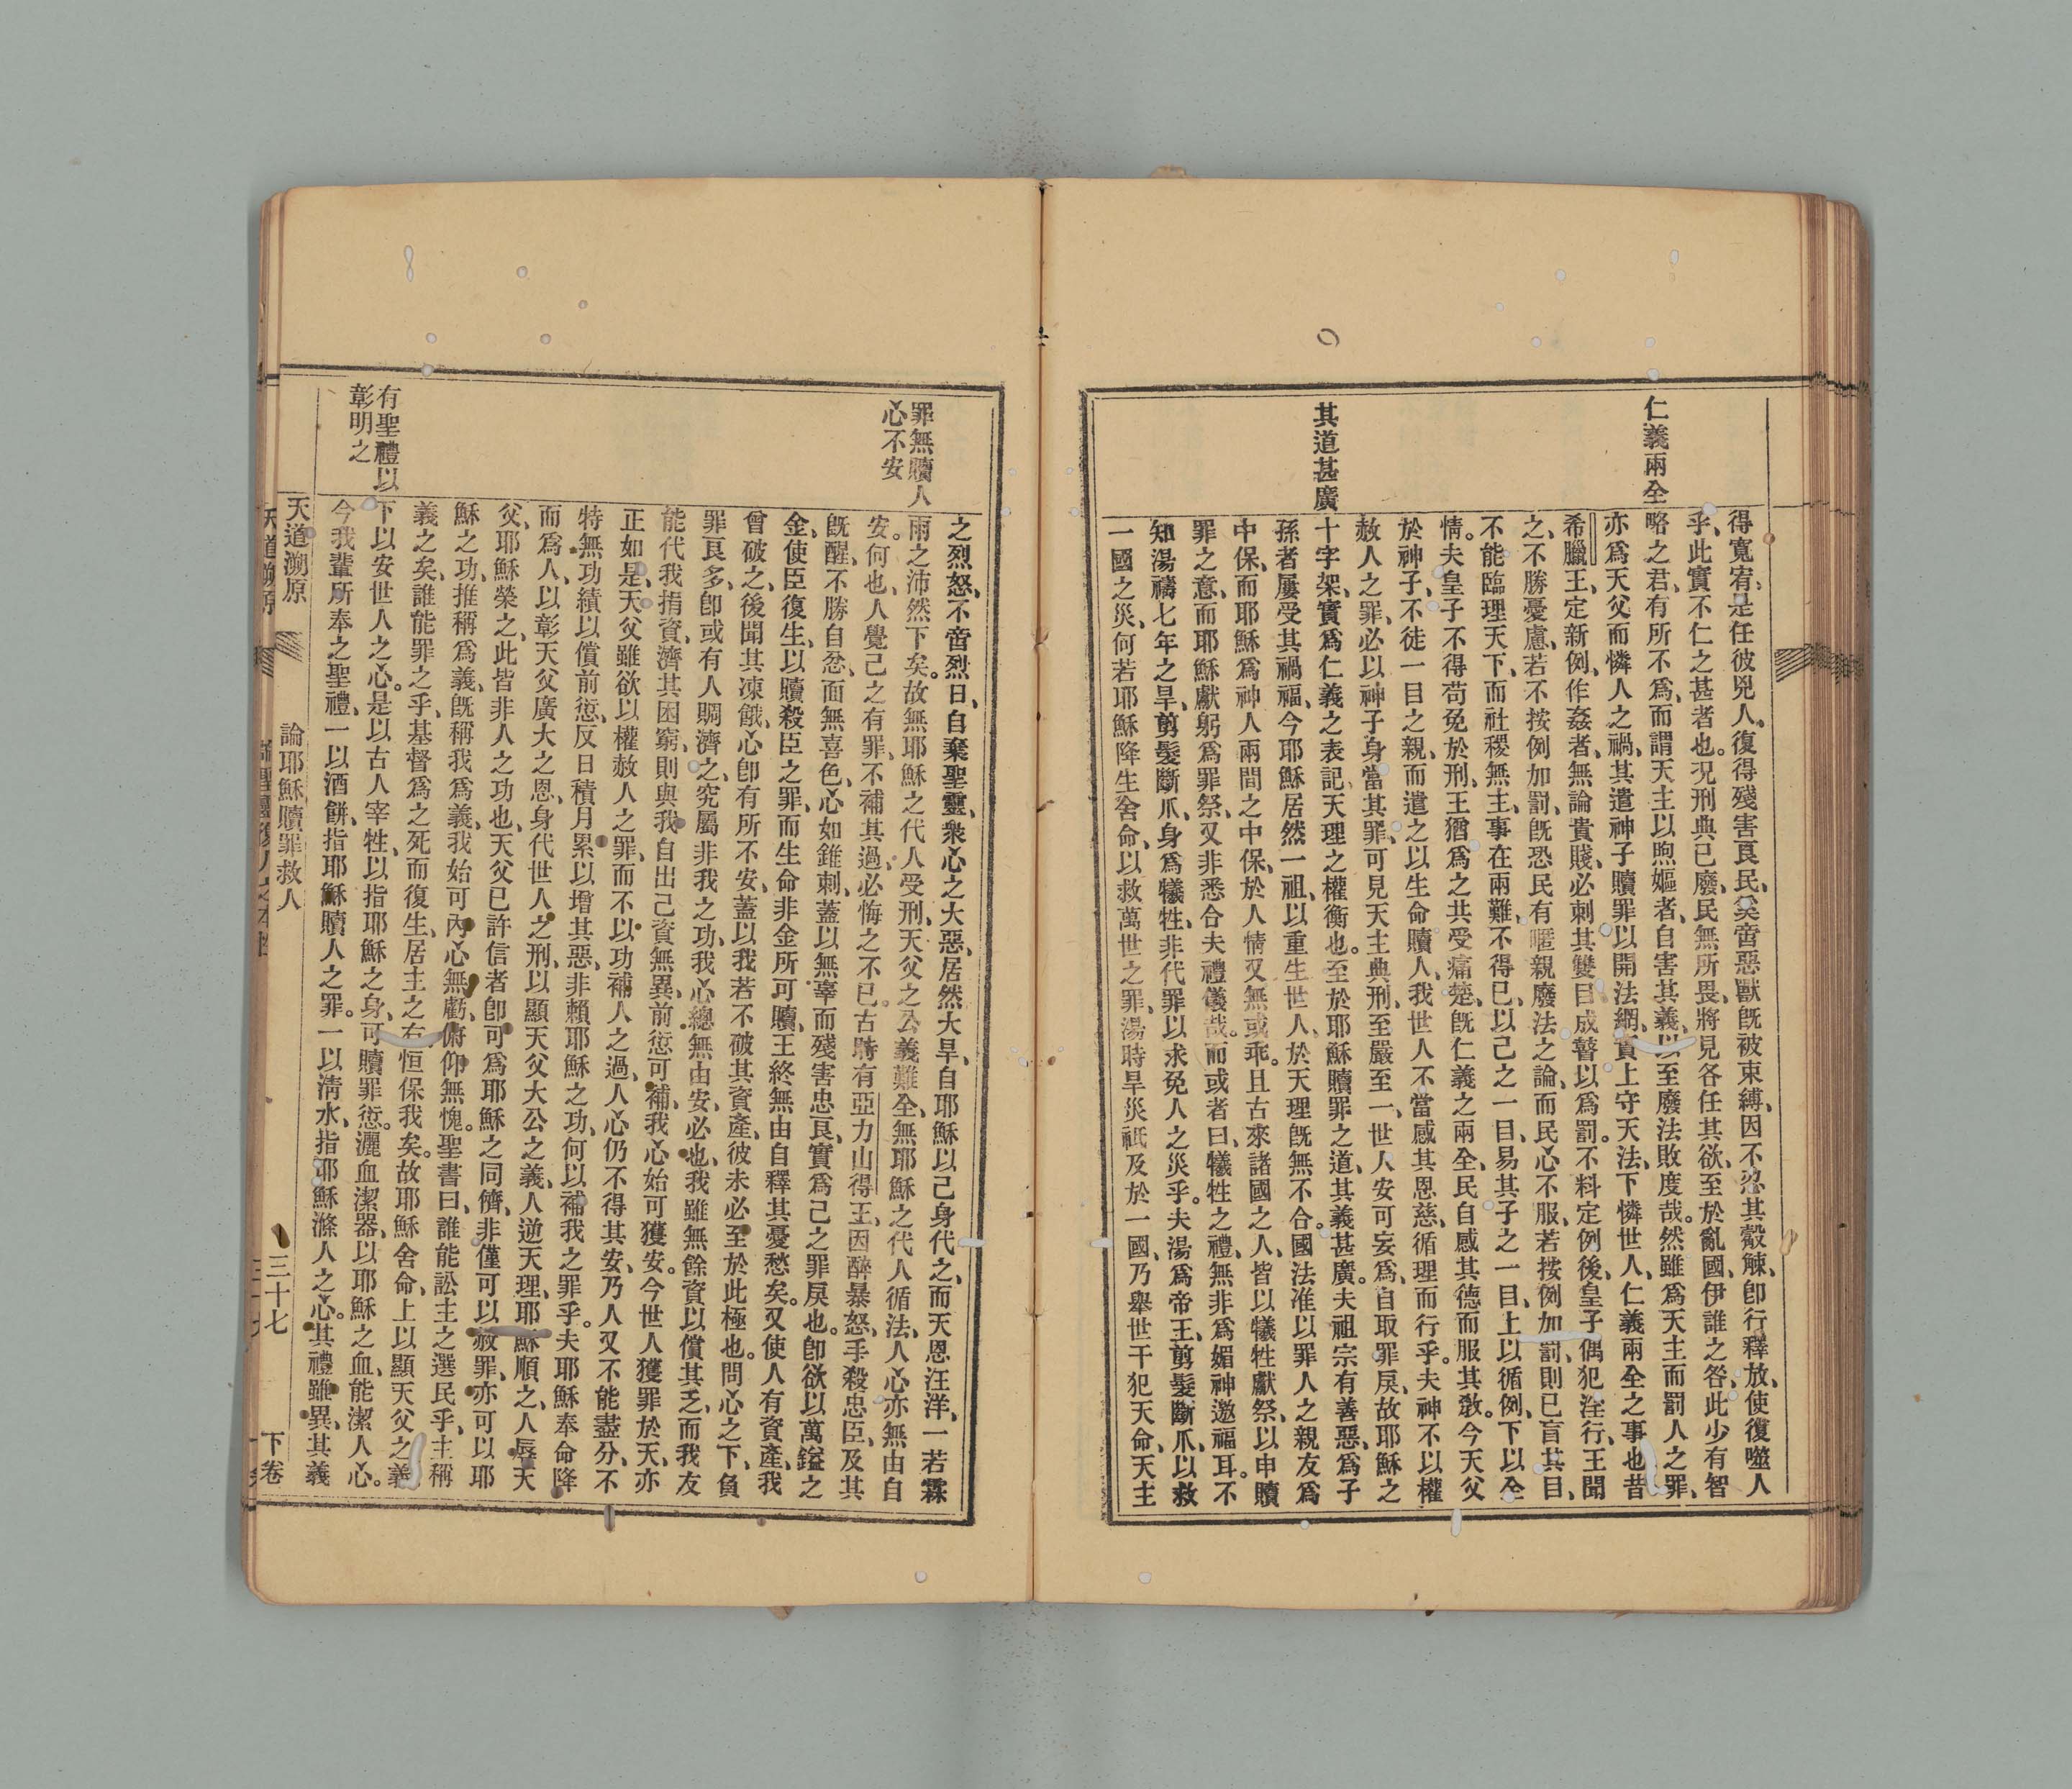 仁義兩全
其道甚廣
得寬宥、是任彼兇人、復得殘害良民、奚啻惡獸既被束縛、因不忍其觳觫、卽行釋放、使復噬人
乎、此實不仁之甚者也。况刑典已廢、民無所畏、將見各任其欲、至於亂國、伊誰之咎、此少有智
略之君、有所不爲、而謂天主以煦嫗者、自害其義、以至廢法敗度哉。然雖爲天主而罰人之罪、
亦爲天父而憐人之禍、其遣神子贖罪以開法網、實上守天法、下憐世人、仁義兩全之事也昔
希臘王、定新例、作姦者、無論貴賤、必刺其雙目成瞽以爲罰。不料定例後、皇子偶犯淫行、王聞
之、不勝憂慮、若不按例加罰、既恐民有暱親廢法之論、而民心不服、若按例加罰、則已盲其目、
不能臨理天下、而社稷無主、事在兩難、不得已、以己之一目、易其子之一目、上以循例、下以全
情。夫皇子不得苟免於刑、王猶爲之共受痛楚、旣仁義之兩全、民自感其德而服其敎。今天父
於神子、不徒一目之親、而遣之以生命贖人、我世人不當感其恩慈、循理而行乎。夫神不以權
赦人之罪、必以神子身當其罪、可見天主典刑、至嚴至一、世人安可妄爲、自取罪戾、故耶穌之
十字架、實爲仁義之表記天理之權衡也。至於耶穌贖罪之道、其義甚廣。夫祖宗有善惡、爲子
孫者屢受其禍福、今耶穌居然一祖、以重生世人、於天理旣無不合。國法准以罪人之親友爲
中保、而耶穌爲神人兩間之中保、於人情又無或乖。且古來諸國之人、皆以犧牲獻祭、以申贖
罪之意、而耶穌獻躬爲罪祭、又非悉合夫禮儀哉。而或者曰、犧牲之禮、無非爲媚神邀福耳。不
知湯禱七年之旱、剪髮斷爪、身爲犧牲、非代罪以求免人之災乎。夫湯爲帝王、剪髮斷爪、以救
一國之災、何若耶穌降生舍命、以救萬世之罪、湯時旱災祗及於一國、乃舉世干犯天命、天主
罪無贖人
心不安
有聖禮以
彰明之
之烈怒、不啻烈日、自棄聖靈、衆心之大惡、居然大旱、自耶穌以己身代之、而天恩汪洋、一若霖
雨之沛然下矣。故無耶穌之代人受刑、天父之公義難全、無耶穌之代人循法、人心亦無由自
安。何也、人覺己之有罪、不補其過、必悔之不已。古時有亞力山得王、因醉暴怒、手殺忠臣、及其
旣醒、不勝自忿、面無喜色、心如錐刺、蓋以無辜而殘害忠良、實爲己之罪戾也。卽欲以萬鎰之
金、使臣復生、以贖殺臣之罪、而生命非金所可贖、王終無由自釋其憂愁矣。又使人有資產、我
曾破之、後聞其凍餓、心卽有所不安、蓋以我若不破其資產、彼未必至於此極也。問心之下、負
罪良多、卽或有人賙濟之、究屬非我之功、我心總無由安、必也、我雖無餘資以償其乏、而我友
能代我捐資、濟其困窮、則與我自出己資無異、前愆可補、我心始可獲安。今世人獲罪於天、亦
正如是、天父雖欲以權赦人之罪、而不以功補人之過、人心仍不得其安、乃人又不能盡分、不
特無功績以償前愆、反日積月累以增其惡、非賴耶穌之功、何以補我之罪乎。夫耶穌奉命降
而爲人、以彰天父廣大之恩、身代世人之刑、以顯天父大公之義、人逆天理、耶穌順之、人辱天
父、耶穌榮之、此皆非人之功也、天父已許信者卽可爲耶穌之同儕、非僅可以赦罪、亦可以耶
穌之功、推稱爲義、旣稱我爲義、我始可內心無虧、俯仰無愧。聖書曰、誰能訟主之選民乎、主稱
義之矣、誰能罪之乎、基督爲之死而復生、居主之右恒保我矣。故耶穌舍命、上以顯天父之義
下以安世人之心。是以古人宰牲、以指耶穌之身、可贖罪愆。灑血潔器、以耶穌之血、能潔人心。
今我輩所奉之聖禮、一以酒餅、指耶穌贖人之罪。一以清水、指耶穌滌人之心。其禮雖異、其義
天道溯原　論耶穌贖罪救人　三十七　下卷